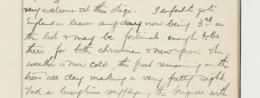 very welcome at this stage. I expect to go to
England on leave any day now being 3rd on
the list & may be fortunate enough to be
there for both Christmas & new year. The
weather is now cold the frost remaining on the
trees all day making a very pretty sight
Had a busy time supplying the brigade with